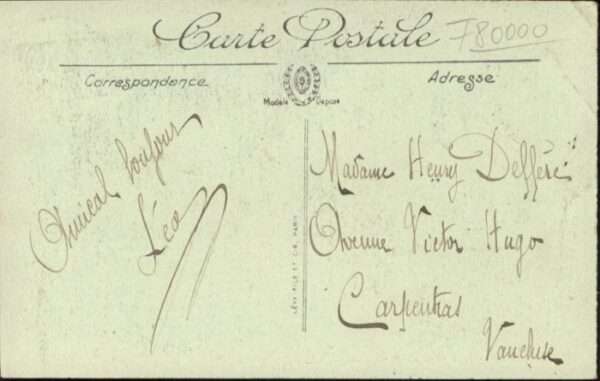 Carte Postale
F80000
Correspondance
Adresse
Modèle Déposé
Amical bonjour
Léo
LÉVY FILS ET CIE, PARIS
Madame Henry Defferé
Avenue Victor Hugo
Carpentras
Vaucluse